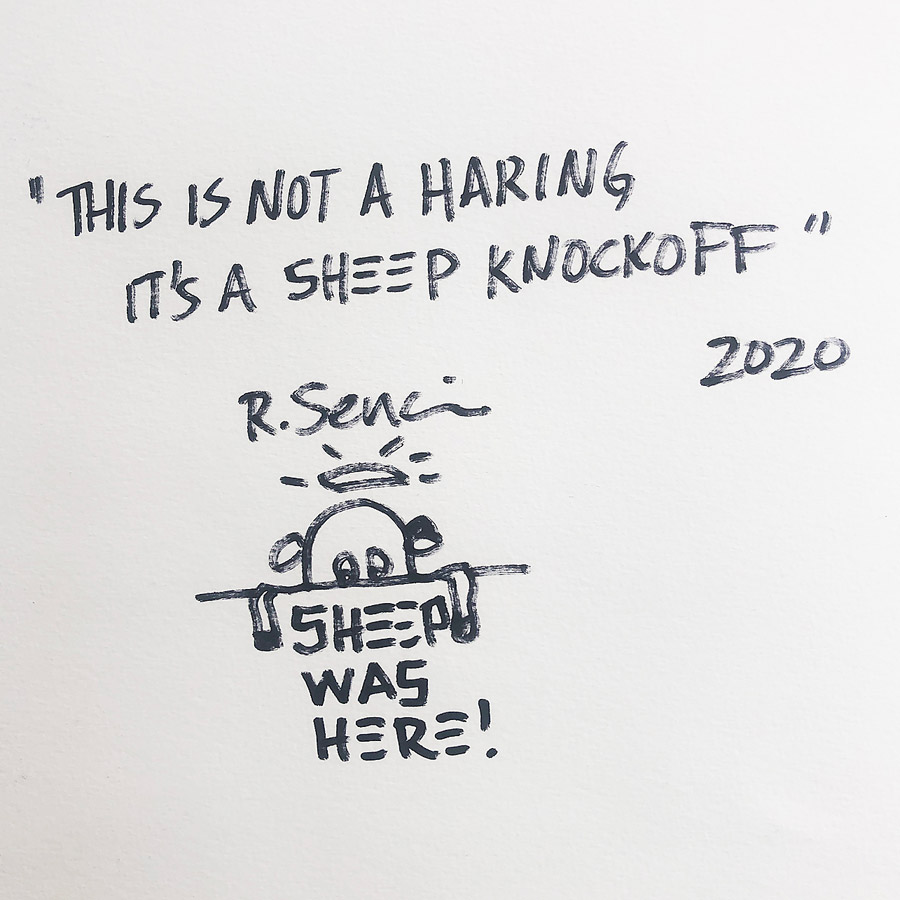 "THIS IS NOT A HARING
IT'S A SHEEP KNOCKOFF"
2020
R. Senci
SHEEP
WAS
HERE!